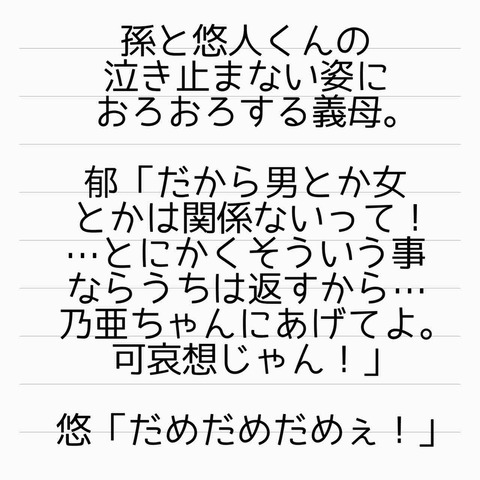 孫と悠人くんの
泣き止まない姿に
おろおろする義母。
郁「だから男とか女
とかは関係ないって！
…とにかくそういう事
ならうちは返すから…
乃亜ちゃんにあげてよ。
可哀想じゃん！」
悠「だめだめだめぇ！」